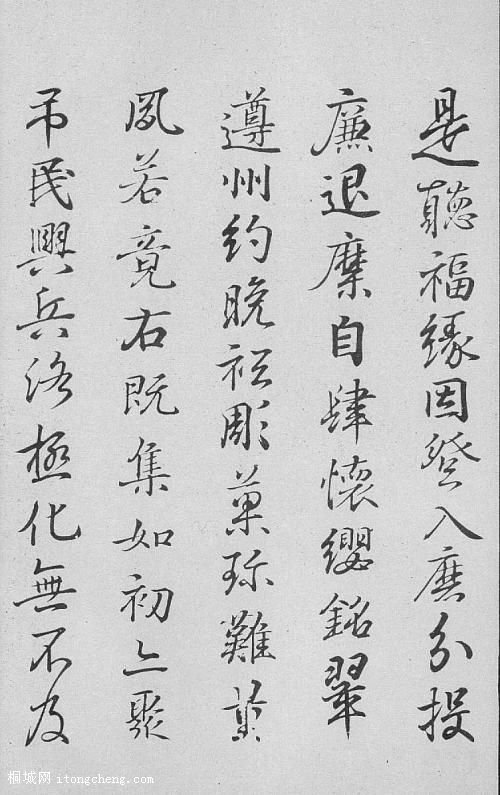 是聽福緣因登入分投
廉退縻自肆懷纓銘翠
遵州約晚彫菓珍難葉
鳳若竟右既集如初上聚
吊民興兵洛極化無不及
桐城网 itongcheng.com